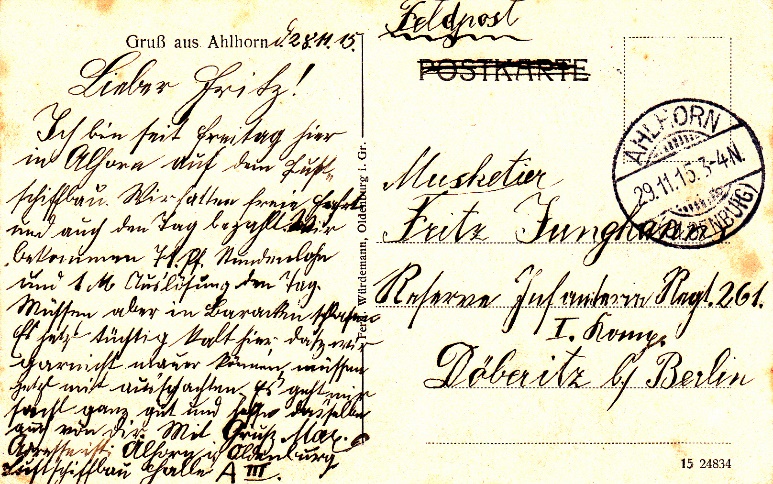 Gruß aus Ahlhorn d. 28.11.15.
Lieber Fritz!
Ich bin seit Freitag hier
in Alhorn auf dem Luft-
schiffbau. Wir hatten freie Fahrt
und auch den Tag bezahlt. Wir
bekommen Pf. Stundenlohn
und 1 M Auslösung den Tag.
Müssen aber in Baracken schlafen
Es ist tüchtig kalt hier dasz wir
garnicht mauer können, müssen
jetzt mit ausschachten. Es geht mir
sonst ganz gut und hoffe dasselbe
auch von dir. Mit Grusz Max.
Adresse ist: Alhorn i. Oldenburg
Luftschiffbau Halle A III.
Ferd. Würdemann, Oldenburg i. Gr.
Feldpost
POSTKARTE
AHLHORN
29.11.15. 3-4N.
(OLDENBURG)
Musketier
Fritz Junghans
Reserve Infanterie Regt. 261.
I. Komp.
Döberitz b/ Berlin
15 24834